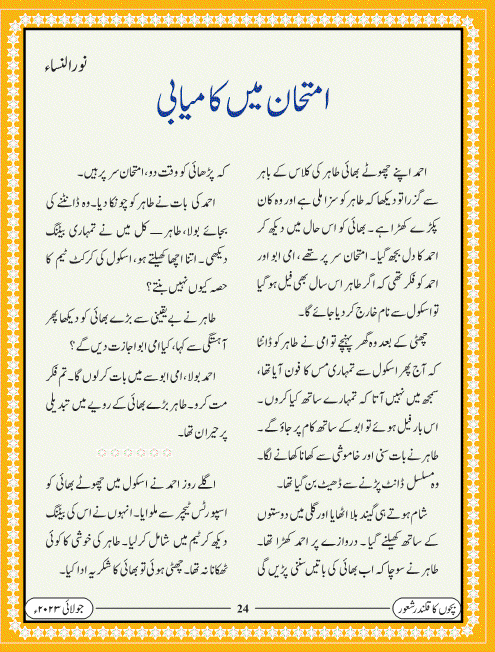 نورالنساء
امتحان میں کامیابی
احمد اپنے چھوٹے بھائی طاہر کی کلاس کے باہر
سے گزرا تو دیکھا کہ طاہر کو سزا ملی ہے اور وہ کان
پکڑے کھڑا ہے۔ بھائی کو اس حال میں دیکھ کر
احمد کا دل بجھ گیا۔ امتحان سر پر تھے، امی ابو اور
احمد کو فکر تھی کہ اگر طاہر اس سال بھی فیل ہو گیا
تو اسکول سے نام خارج کر دیا جائے گا۔
چھٹی کے بعد وہ گھر پہنچے تو امی نے طاہر کو ڈانٹا
کہ آج پھر اسکول سے تمہاری مس کا فون آیا تھا،
سمجھ میں نہیں آتا کہ تمہارے ساتھ کیا کروں۔
اس بار فیل ہوئے تو ابو کے ساتھ کام پر جاؤ گے۔
طاہر نے بات سنی اور خاموشی سے کھانا کھانے لگا۔
وہ مسلسل ڈانٹ پڑنے سے ڈھیٹ بن گیا تھا۔
شام ہوتے ہی گیند بلا اٹھایا اور گلی میں دوستوں
کے ساتھ کھیلنے گیا۔ دروازے پر احمد کھڑا تھا۔
طاہر نے سوچا کہ اب بھائی کی باتیں سننی پڑیں گی
کہ پڑھائی کو وقت دو، امتحان سر پر ہیں۔
احمد کی بات نے طاہر کو چونکا دیا۔ وہ ڈانٹنے کی
بجائے بولا، طاہر — کل میں نے تمہاری بیٹنگ
دیکھی۔ اتنا اچھا کھیلتے ہو، اسکول کی کرکٹ ٹیم کا
حصہ کیوں نہیں بنتے؟
طاہر نے بے یقینی سے بڑے بھائی کو دیکھا پھر
آہستگی سے کہا، کیا امی ابو اجازت دیں گے؟
احمد بولا، امی ابو سے میں بات کرلوں گا۔ تم فکر
مت کرو۔ طاہر بڑے بھائی کے رویے میں تبدیلی
پر حیران تھا۔
اگلے روز احمد نے اسکول میں چھوٹے بھائی کو
اسپورٹس ٹیچر سے ملوایا۔ انہوں نے اس کی بیٹنگ
دیکھ کر ٹیم میں شامل کر لیا۔ طاہر کی خوشی کا کوئی
ٹھکانا نہ تھا۔ چھٹی ہوئی تو بھائی کا شکریہ ادا کیا۔
بچوں کا قلندر شعور
24
جولائی ۲۰۲۳ء